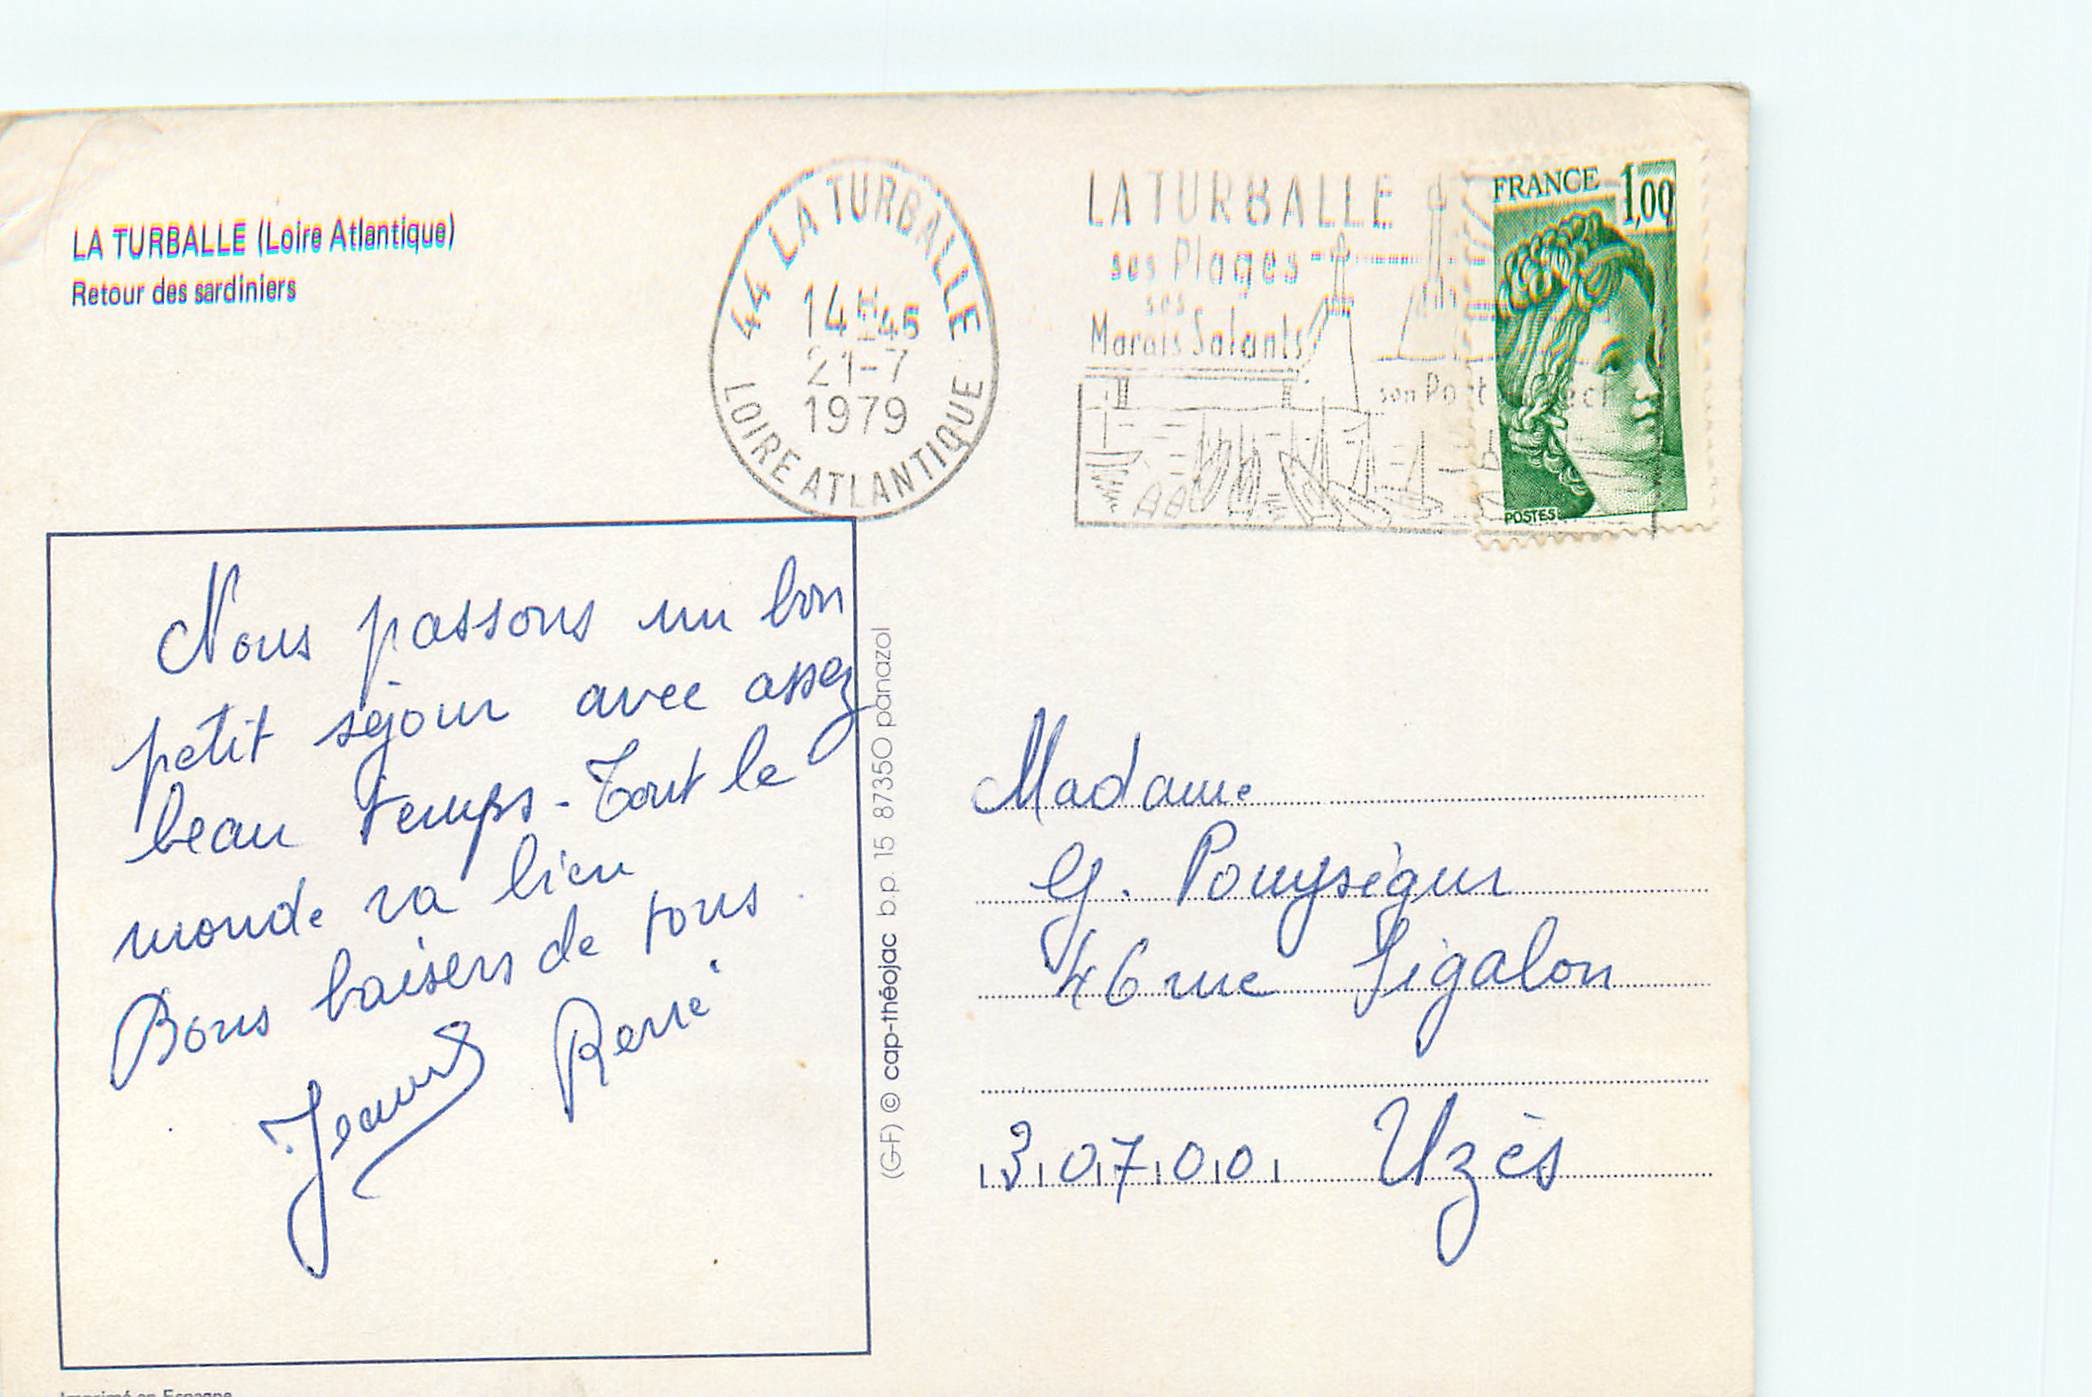 LA TURBALLE (Loire Atlantique)
Retour des sardiniers
44 LA TURBALLE
14H45
21-7
1979
LOIRE ATLANTIQUE
LA TURBALLE
ses Plages
ses
Marais Salants
son Port
FRANCE 1,00
POSTES
Nous passons un bon
petit séjour avec assez
beau temps - Tout le
monde va bien
Bons baisers de tous.
René
(G-F) © cap-théojac b.p. 15 87350 panazol
Madame
G. Pouységur
46 rue Sigalon
30700 Uzès
Imprimé en Espagne